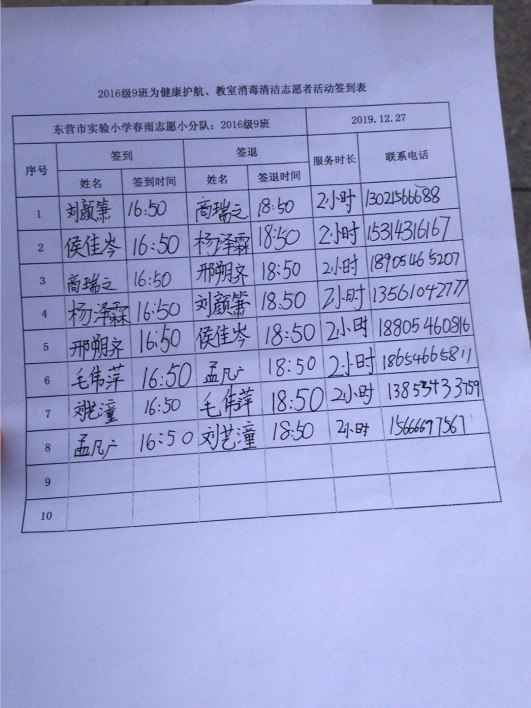 2016级9班为健康护航、教室消毒清洁志愿者活动签到表
东营市实验小学春雨志愿小分队：2016级9班 2019.12.27
序号 签到 签退 服务时长 联系电话
姓名 签到时间 姓名 签退时间
1 刘颜箫 16:50 高瑞之 18:50 2小时 13021566688
2 侯佳岑 16:50 杨泽霖 18:50 2小时 15314316167
3 高瑞之 16:50 邢朔齐 18:50 2小时 18905465207
4 杨泽霖 16:50 刘颜箫 18:50 2小时 13561042777
5 邢朔齐 16:50 侯佳岑 18:50 2小时 18805460816
6 毛伟萍 16:50 孟凡广 18:50 2小时 18654665811
7 刘艺潼 16:50 毛伟萍 18:50 2小时
8 孟凡广 16:50 刘艺潼 18:50 2小时 15666697567
9
10